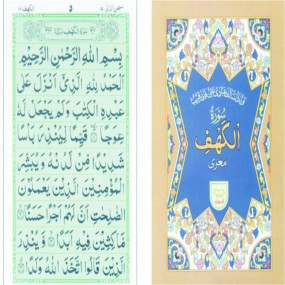 الكهف ١٨
٥
سُوْرَةُ الْكَهْفِ
بِسْمِ اللّٰهِ الرَّحْمٰنِ الرَّحِيْمِ
اَلْحَمْدُ لِلّٰهِ الَّذِيْٓ اَنْزَلَ عَلٰى
عَبْدِهِ الْكِتٰبَ وَلَمْ يَجْعَلْ لَّهٗ
عِوَجًا ۜ قَيِّمًا لِّيُنْذِرَ بَاْسًا
شَدِيْدًا مِّنْ لَّدُنْهُ وَيُبَشِّرَ
الْمُؤْمِنِيْنَ الَّذِيْنَ يَعْمَلُوْنَ
الصّٰلِحٰتِ اَنَّ لَهُمْ اَجْرًا حَسَنًا
مَّاكِثِيْنَ فِيْهِ اَبَدًا وَّيُنْذِرَ
الَّذِيْنَ قَالُوا اتَّخَذَ اللّٰهُ وَلَدًا
سُوْرَةُ
الْكَهْفِ
معرٰی